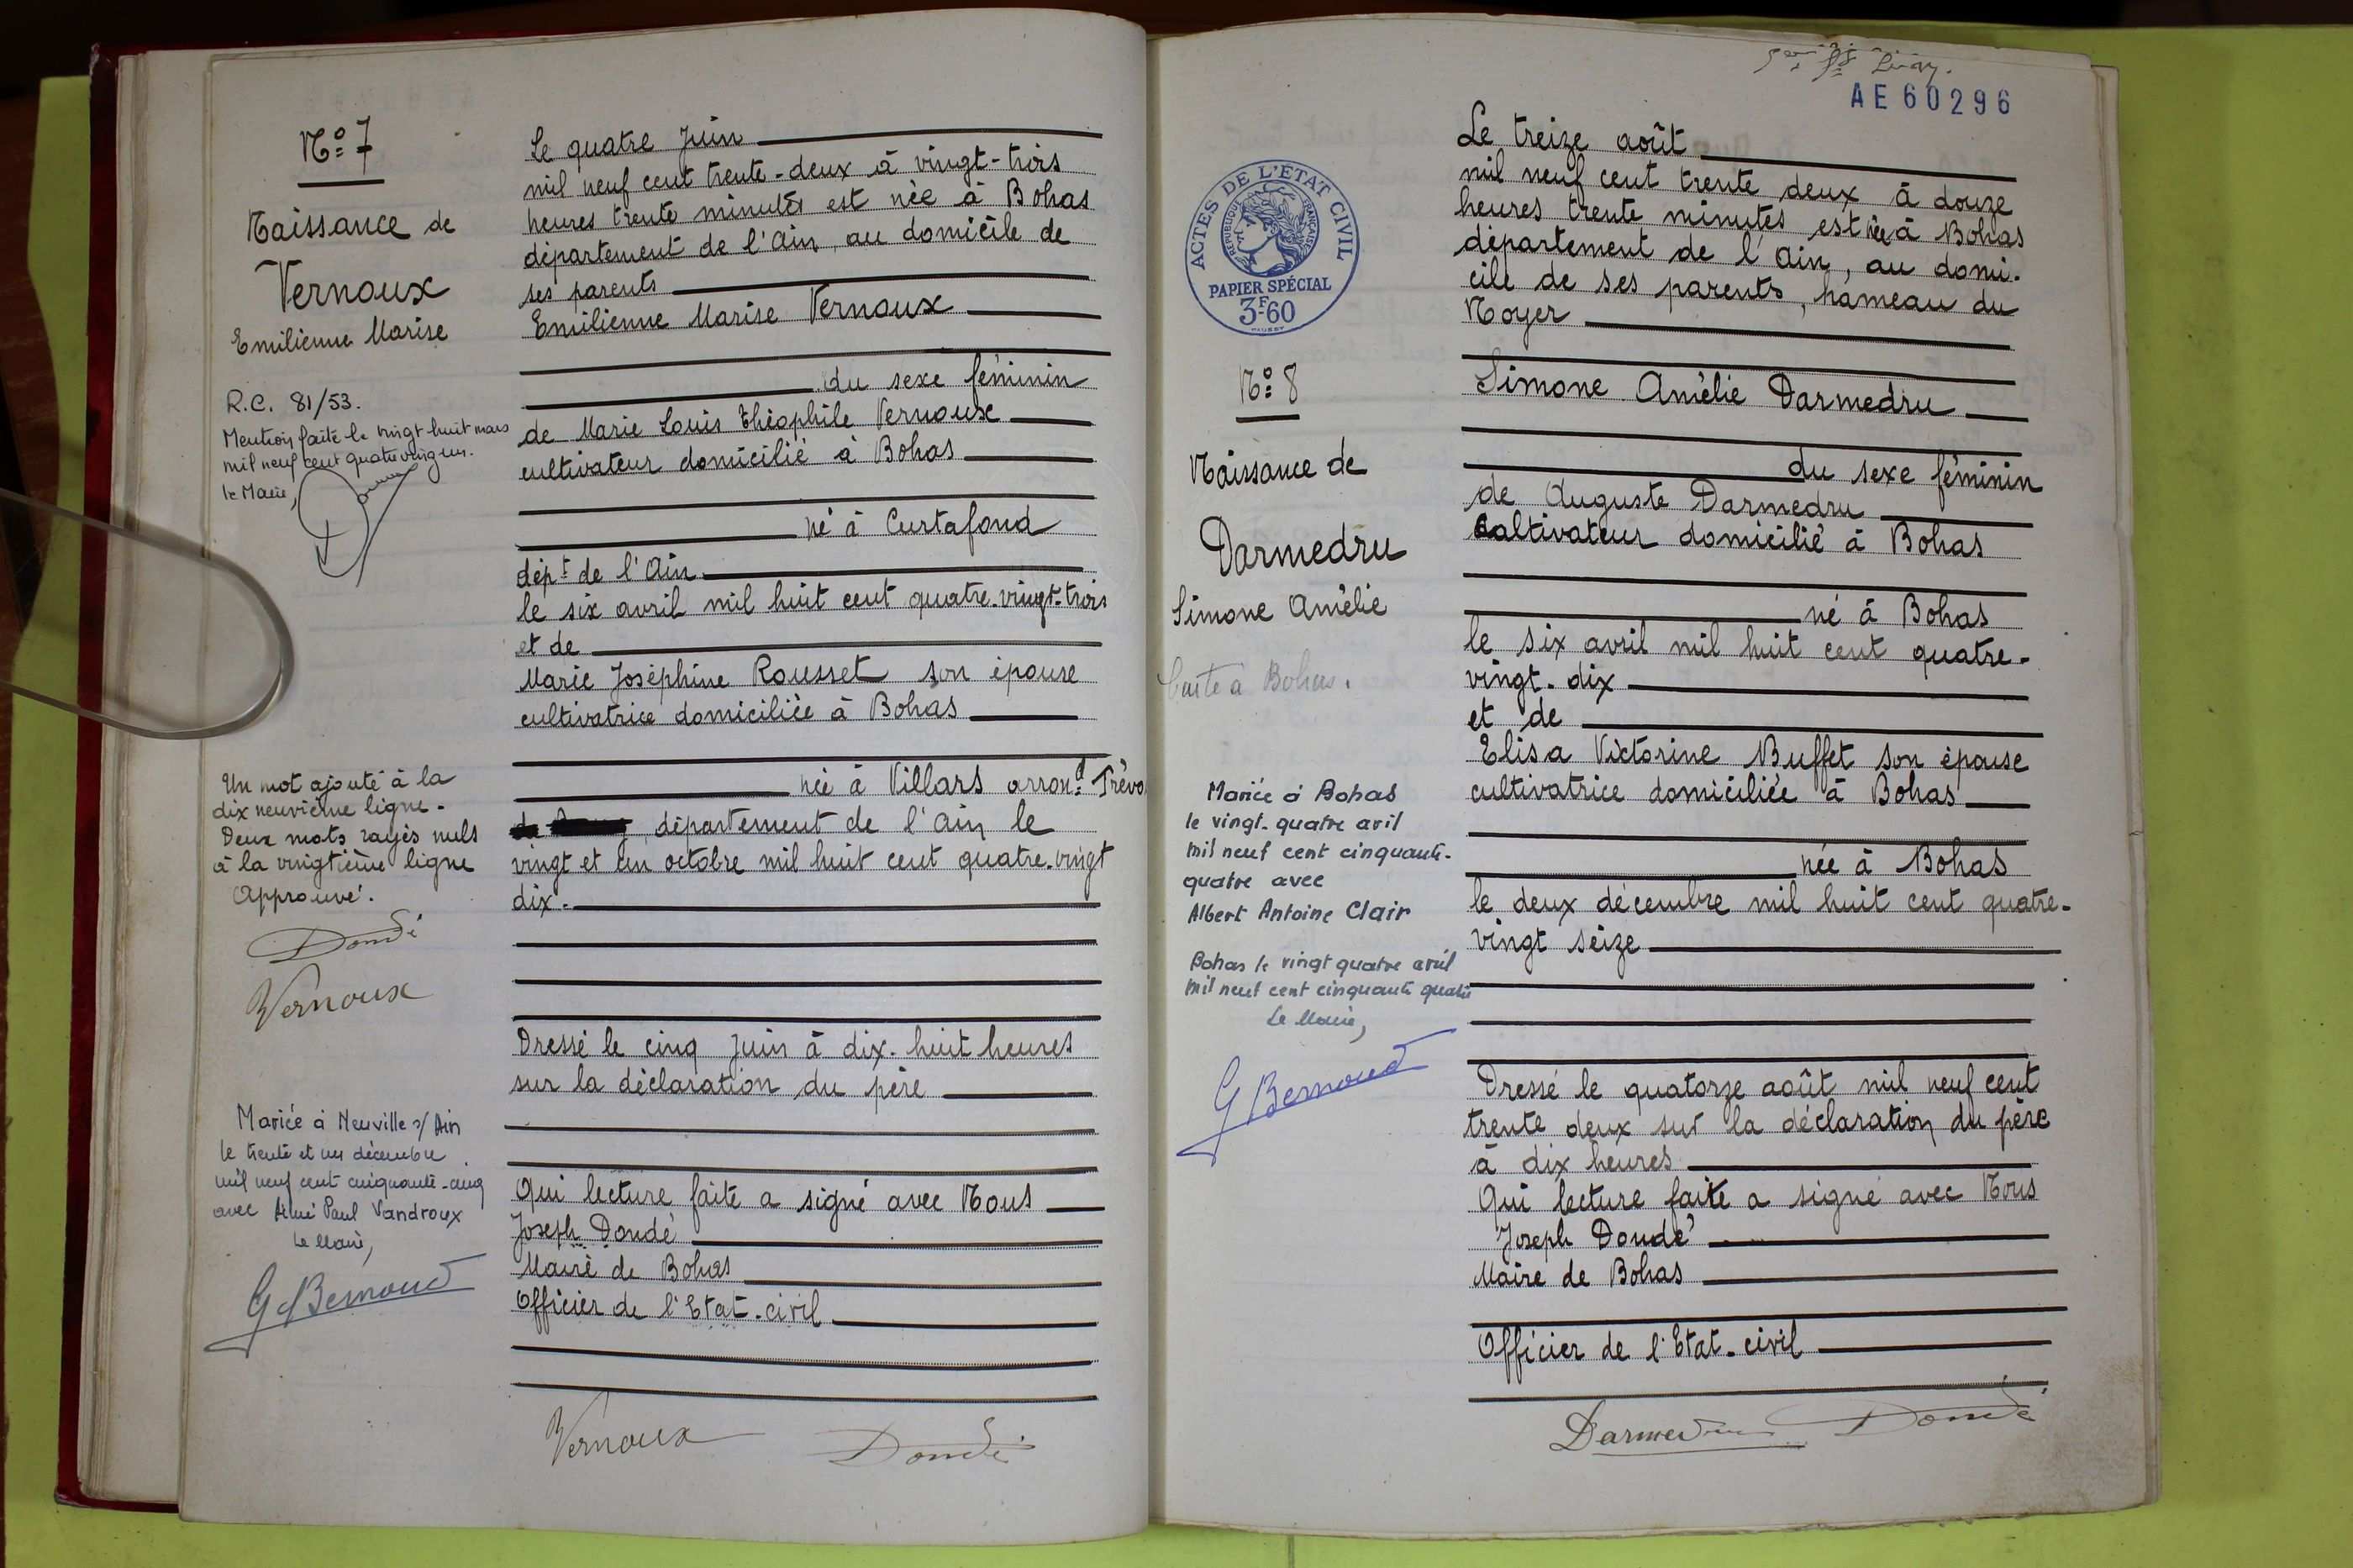 Nº 7
Naissance de
Vernoux
Emilienne Marise
R.C. 81/53.
Mention faite le vingt huit mars
mil neuf cent quatre vingt un.
le Maire,
Un mot ajouté à la
dix neuvième ligne.
Deux mots rayés nuls
à la vingtième ligne
Approuvé.
Dondé
Vernoux
Mariée à Neuville s/ Ain
le trente et un décembre
mil neuf cent cinquante-cinq
avec Aimé Paul Vandroux
Le Maire,
G Bernoud
Le quatre Juin
mil neuf cent trente-deux à vingt-trois
heures trente minutes est née à Bohas
département de l'Ain, au domicile de
ses parents
Emilienne Marise Vernoux
du sexe féminin
de Marie Louis Théophile Vernoux
cultivateur domicilié à Bohas
né à Curtafond
dépt de l'Ain
le six avril mil huit cent quatre-vingt-trois
et de
Marie Joséphine Rousset son épouse
cultivatrice domiciliée à Bohas
née à Villars arrond. Trévo
département de l'Ain le
vingt et un octobre mil huit cent quatre-vingt
dix.
Dressé le cinq Juin à dix-huit heures
sur la déclaration du père
Qui lecture faite a signé avec Nous
Joseph Dondé
Maire de Bohas
Officier de l'Etat-civil
Vernoux Dondé
AE60296
ACTES DE L'ÉTAT CIVIL
RÉPUBLIQUE FRANÇAISE
PAPIER SPÉCIAL
3F60
Nº 8
Naissance de
Darmedru
Simone Amélie
à Bohas.
Mariée à Bohas
le vingt-quatre avil
mil neuf cent cinquante-
quatre avec
Albert Antoine Clair
Bohas le vingt quatre avril
mil neuf cent cinquante quatre
Le Maire,
G Bernoud
Le treize août
mil neuf cent trente deux à douze
heures trente minutes est née à Bohas
département de l'Ain, au domi-
cile de ses parents, hameau du
Noyer
Simone Amélie Darmedru
du sexe féminin
de Auguste Darmedru
Cultivateur domicilié à Bohas
né à Bohas
le six avril mil huit cent quatre-
vingt-dix
et de
Elisa Victorine Buffet son épouse
cultivatrice domiciliée à Bohas
née à Bohas
le deux décembre mil huit cent quatre-
vingt seize
Dressé le quatorze août mil neuf cent
trente deux sur la déclaration du père
à dix heures
Qui lecture faite a signé avec Nous
Joseph Dondé
Maire de Bohas
Officier de l'Etat-civil
Darmedru Dondé